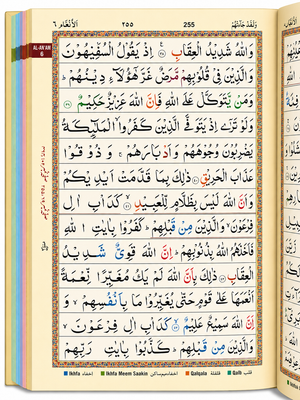 الأنعام ٦
٢٥٥
255
AL-AN'AM
6
وَاللّٰهُ شَدِيْدُ الْعِقَابِ ۝ اِذْ يَقُوْلُ
وَالَّذِيْنَ فِيْ قُلُوْبِهِمْ مَّرَضٌ غَرَّ هٰٓؤُلَآءِ دِيْنُهُمْ ؕ
وَمَنْ يَّتَوَكَّلْ عَلَى اللّٰهِ فَاِنَّ اللّٰهَ عَزِيْزٌ حَكِيْمٌ ۝
وَلَوْ تَرٰٓى اِذْ يَتَوَفَّى الَّذِيْنَ كَفَرُوا ۙ الْمَلٰٓئِكَةُ
يَضْرِبُوْنَ وُجُوْهَهُمْ وَاَدْبَارَهُمْ ۚ وَ ذُوْقُوْا
عَذَابَ الْحَرِيْقِ ۝ ذٰلِكَ بِمَا قَدَّمَتْ اَيْدِيْكُمْ
وَاَنَّ اللّٰهَ لَيْسَ بِظَلَّامٍ لِّلْعَبِيْدِ ۝ كَدَاْبِ اٰلِ
فِرْعَوْنَ ۙ وَالَّذِيْنَ مِنْ قَبْلِهِمْ ؕ كَفَرُوْا بِاٰيٰتِ اللّٰهِ
فَاَخَذَهُمُ اللّٰهُ بِذُنُوْبِهِمْ ؕ اِنَّ اللّٰهَ قَوِيٌّ شَدِيْدُ
الْعِقَابِ ۝ ذٰلِكَ بِاَنَّ اللّٰهَ لَمْ يَكُ مُغَيِّرًا نِّعْمَةً
اَنْعَمَهَا عَلٰى قَوْمٍ حَتّٰى يُغَيِّرُوْا مَا بِاَنْفُسِهِمْ ۙ وَ
اَنَّ اللّٰهَ سَمِيْعٌ عَلِيْمٌ ۝ كَدَاْبِ اٰلِ فِرْعَوْنَ ۙ
وَالَّذِيْنَ مِنْ قَبْلِهِمْ ؕ كَذَّبُوْا بِاٰيٰتِ رَبِّهِمْ
Ikhfa إخفاء Ikhfa Meem Saakin Qalqala قلقلة Qalb قلب